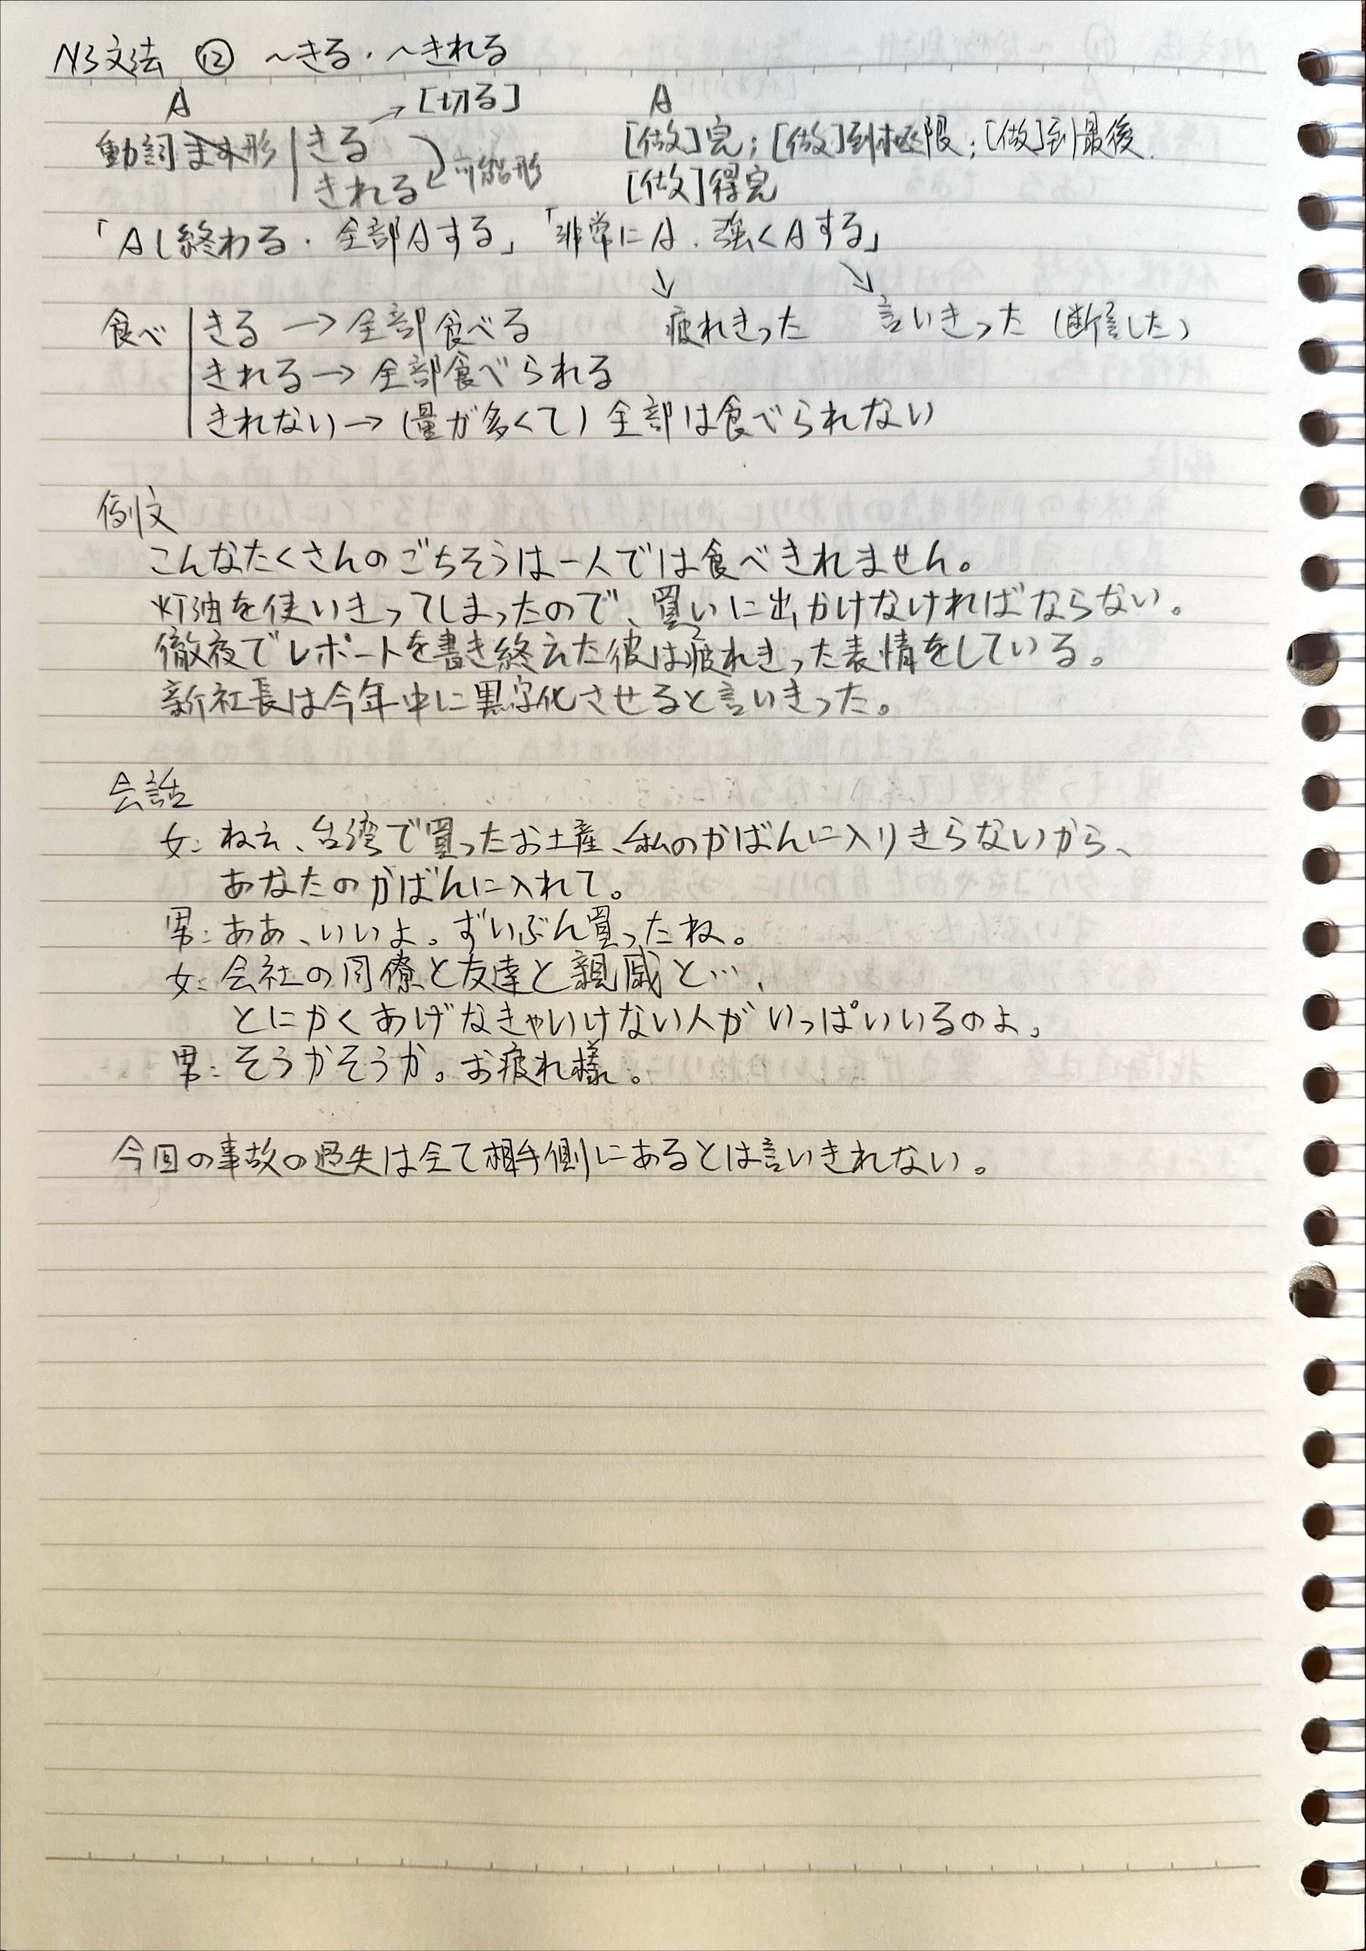 N3文法 ⑫ ～きる・～きれる
A → [切る] A
動詞ます形 きる [做]完；[做]到極限；[做]到最後.
きれる 可能形 [做]得完
「Aし終わる・全部Aする」「非常にA・強くAする」
↓ ↘
食べ きる → 全部食べる 疲れきった 言いきった（断言した）
きれる→ 全部食べられる
きれない→（量が多くて）全部は食べられない
例文
こんなたくさんのごちそうは一人では食べきれません。
灯油を使いきってしまったので、買いに出かけなければならない。
徹夜でレポートを書き終えた彼は疲れきった表情をしている。
新社長は今年中に黒字化させると言いきった。
会話
女：ねえ、台湾で買ったお土産、私のかばんに入りきらないから、
あなたのかばんに入れて。
男：ああ、いいよ。ずいぶん買ったね。
女：会社の同僚と友達と親戚と…、
とにかくあげなきゃいけない人がいっぱいいるのよ。
男：そうかそうか。お疲れ様。
今回の事故の過失は全て相手側にあるとは言いきれない。